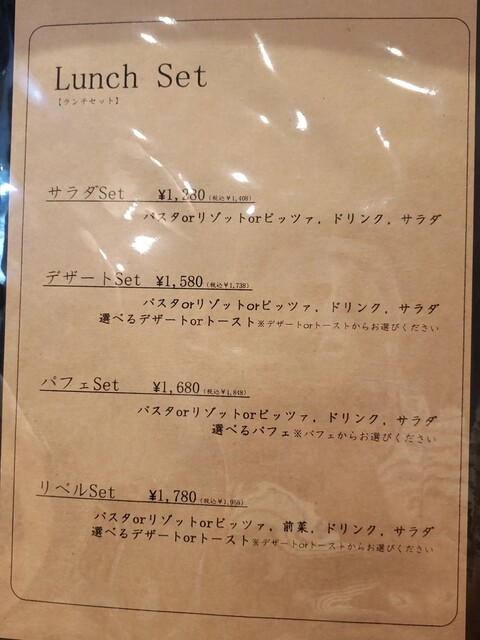 Lunch Set
【ランチセット】
サラダSet ¥1,280(税込¥1,408)
パスタorリゾットorピッツァ, ドリンク, サラダ
デザートSet ¥1,580(税込¥1,738)
パスタorリゾットorピッツァ, ドリンク, サラダ
選べるデザートorトースト※デザートorトーストからお選びください
パフェSet ¥1,680(税込¥1,848)
パスタorリゾットorピッツァ, ドリンク, サラダ
選べるパフェ※パフェからお選びください
リベルSet ¥1,780(税込¥1,958)
パスタorリゾットorピッツァ, 前菜, ドリンク, サラダ
選べるデザートorトースト※デザートorトーストからお選びください